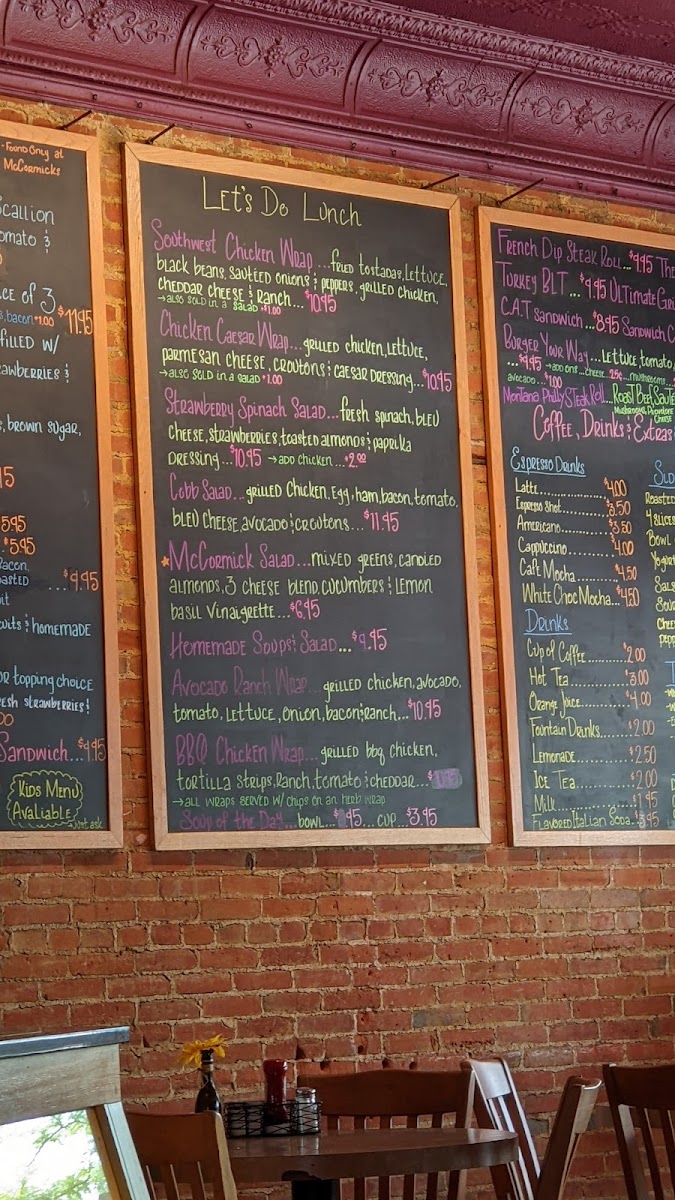 • Found Only at
McCormicks
Scallion
Tomato &
ce of 3
s, bacon +1.00 $11.95
filled w/
strawberries &
, brown sugar,
5.95
$5.95
Bacon,
... $9.95
& homemade
or topping choice
fresh strawberries!
Sandwich...$9.95
Kids Menu
Avaliable
→ Just ask
Let's Do Lunch
Southwest Chicken Wrap...fried tostadas, lettuce,
black beans, sautéed onions & peppers, grilled chicken,
cheddar cheese & ranch... $10.95
→ also sold in a salad +$1.00
Chicken Caesar Wrap...grilled chicken, lettuce,
parmesan cheese, croutons & caesar dressing...$10.95
→ also sold in a salad +1.00
Strawberry Spinach Salad...fresh spinach, bleu
cheese, strawberries, toasted almonds & paprika
dressing...$10.95 → add chicken...+2.00
Cobb Salad...grilled chicken, egg, ham, bacon, tomato,
bleu cheese, avocado & croutons...$11.95
McCormick Salad...mixed greens, candied
almonds, 3 cheese blend, cucumbers & lemon
basil vinaigrette...$6.95
Homemade Soups & Salad...$9.95
Avocado Ranch Wrap...grilled chicken, avocado,
tomato, lettuce, onion, bacon & ranch...$10.95
BBQ Chicken Wrap...grilled bbq chicken,
tortilla strips, ranch, tomato & cheddar...
→ all wraps served w/ chips on an herb wrap
Soup of the Day...bowl...cup...$3.95
French Dip Steak Roll...$9.95 The
Turkey BLT...$9.95 Ultimate Gri
C.A.T Sandwich...$8.95 Sandwich C
Burger Your Way...Lettuce, tomato,
...$9.95 → add ons...cheese 25¢...mushrooms
avocado...1.00
Montana Philly Steak Roll...Roast Beef, Saute
Mushrooms, Provolone
Cheese
Coffee, Drinks & Extras
Espresso Drinks
Latte...$4.00
Espresso Shot...$3.50
Americano...$3.50
Cappuccino...$4.00
Café Mocha...$4.50
White Choc Mocha...$4.50
Drinks
Cup of Coffee...$2.00
Hot Tea...$3.00
Orange Juice...$4.00
Fountain Drinks...$2.00
Lemonade...$2.50
Ice Tea...$2.00
Milk...$1.95
Flavored Italian Soda...$3.95
Roasted
4 slices
Bowl
Yogurt
Sals
Sour
Chee
pepp